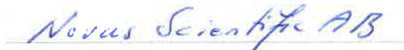 Novus Scientific AB